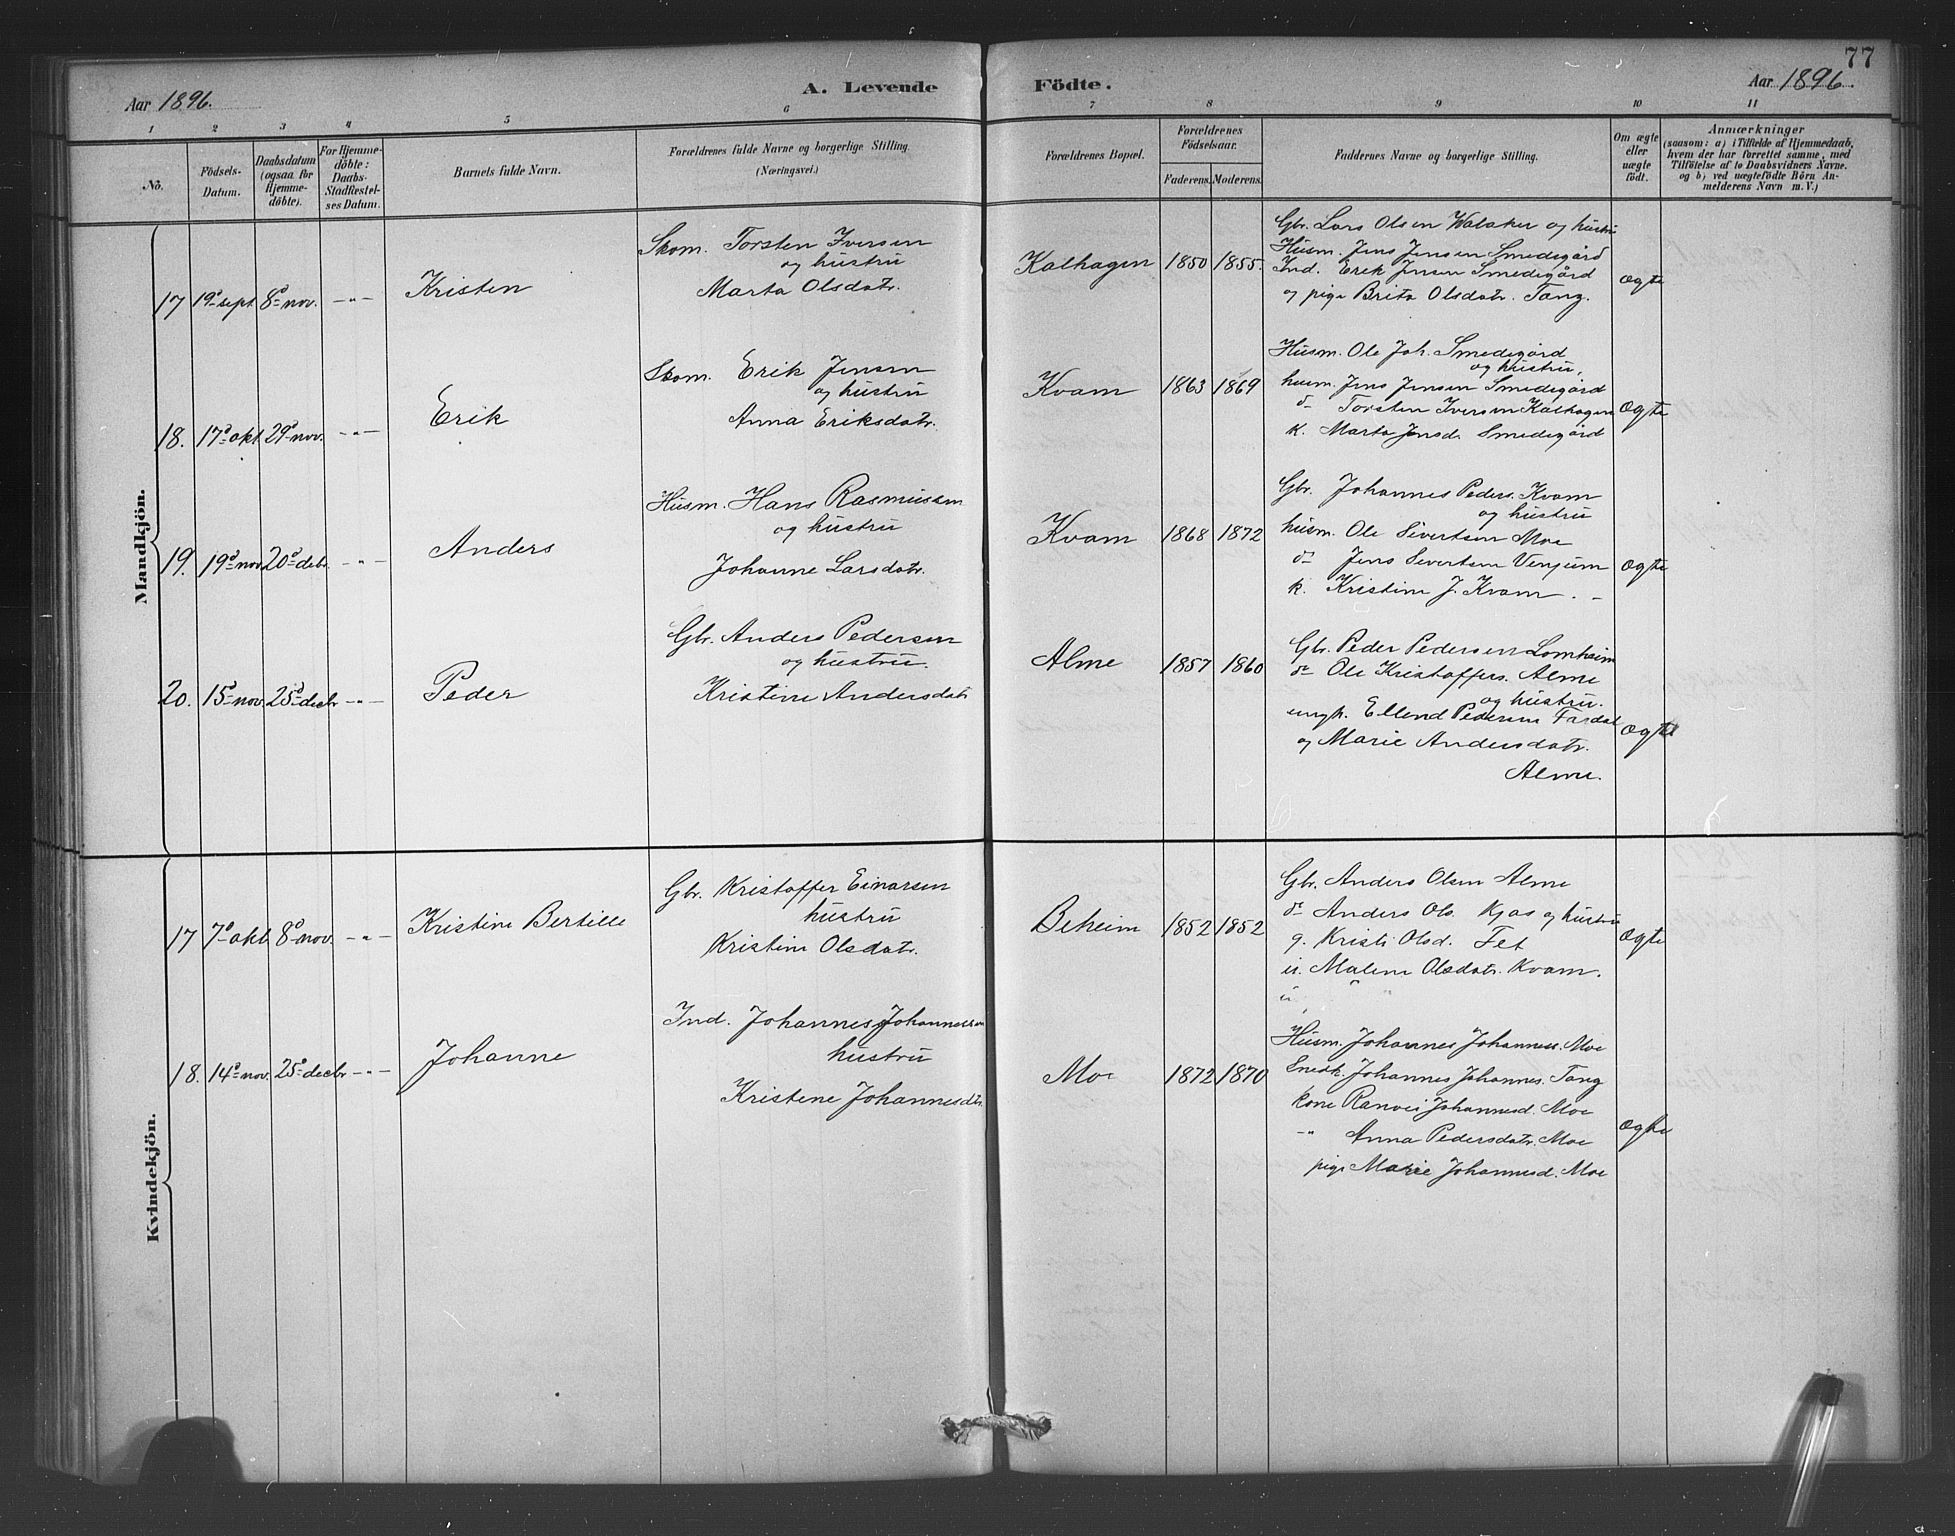 77
Aar 1896. A. Levende Födte. Aar 1896.
1 2 3 4 5 6 7 8 9 10 11
No.
Födsels-Datum.
Daabsdatum (ogsaa for Hjemme-döbte).
For Hjemme-döbte: Daabs-Stadfæstel-ses Datum.
Barnets fulde Navn.
Forældrenes fulde Navne og borgerlige Stilling.
(Næringsvei.)
Forældrenes Bopæl.
Forældrenes Födselsaar.
Faderens. Moderens.
Faddernes Navne og borgerlige Stilling.
Om ægte eller uægte födt.
Anmærkninger
(saasom: a) i Tilfælde af Hjemmedaab,
hvem der har forrettet samme, med
Tilföielse af to Daabsvidners Navne.
og b) ved uægtefödte Börn An-
melderens Navn m. V.)
Mandkjön.
17 19d sept. 8d nov. -"- Kristen
Skom. Torsten Iversen
og hustru
Marta Olsdatr.
Kalhagen 1850 1855.
Gbr. Lars Olsen Walaker og hustru
Husm. Jens Jensen Smedegård
Ind. Erik Jensen Smedegård
og pige Brita Olsdatr. Tang.
Ægte
18. 17d okt. 29d nov. -"- Erik
Skom. Erik Jensen
og hustru
Anna Eriksdatr.
Kvam 1863 1869
Husm. Ole Joh. Smedegård
og hustru,
husm. Jens Jensen Smedegård
do Torsten Iversen Kalhagen
k. Marta Jensd. Smedegård
Ægte
19. 19d nov. 20d debr. -"- Anders
Husm. Hans Rasmussen
og hustru
Johanne Larsdatr.
Kvam 1868 1872
Gbr. Johannes Peders. Kvam
og hustru
husm. Ole Sivertsen Moe
do Jens Sivertsen Venjum
k. Kristine J. Kvam. -
Ægte
20. 15d nov. 25d decbr -"- Peder
Gbr. Anders Pedersen
og hustru.
Kristine Andersdatr
Alme 1857 1860
Gbr. Peder Pedersen Lomheim
do Ole Kristoffers. Alme
og hustru.
ungk. Ellend Pedersen Fardal
og Marie Andersdatr.
Alme.
Ægte
Kvindekjön.
17 7d okt. 8d nov. -"- Kristine Bertille
Gbr. Kristoffer Einarsen
hustru
Kristine Olsdatr.
Beheim 1852 1852
Gbr. Anders Olsen Alme
do Anders Ols. Kjos og hustru
g. Kristi Olsd. Fet
u. Malene Olsdatr. Kvam.
Ægte
18. 14d nov. 25d decbr -"- Johanne
Ind. Johannes Johannessen
hustru
Kristene Johannesdtr.
Moe 1872 1870
Husm. Johannes Johanness. Moe
Snedk. Johannes Johannes. Tang
kone Ranvei Johannesd. Moe
-"- Anna Pedersdatr. Moe
pige Marie Johannesd. Moe
Ægte